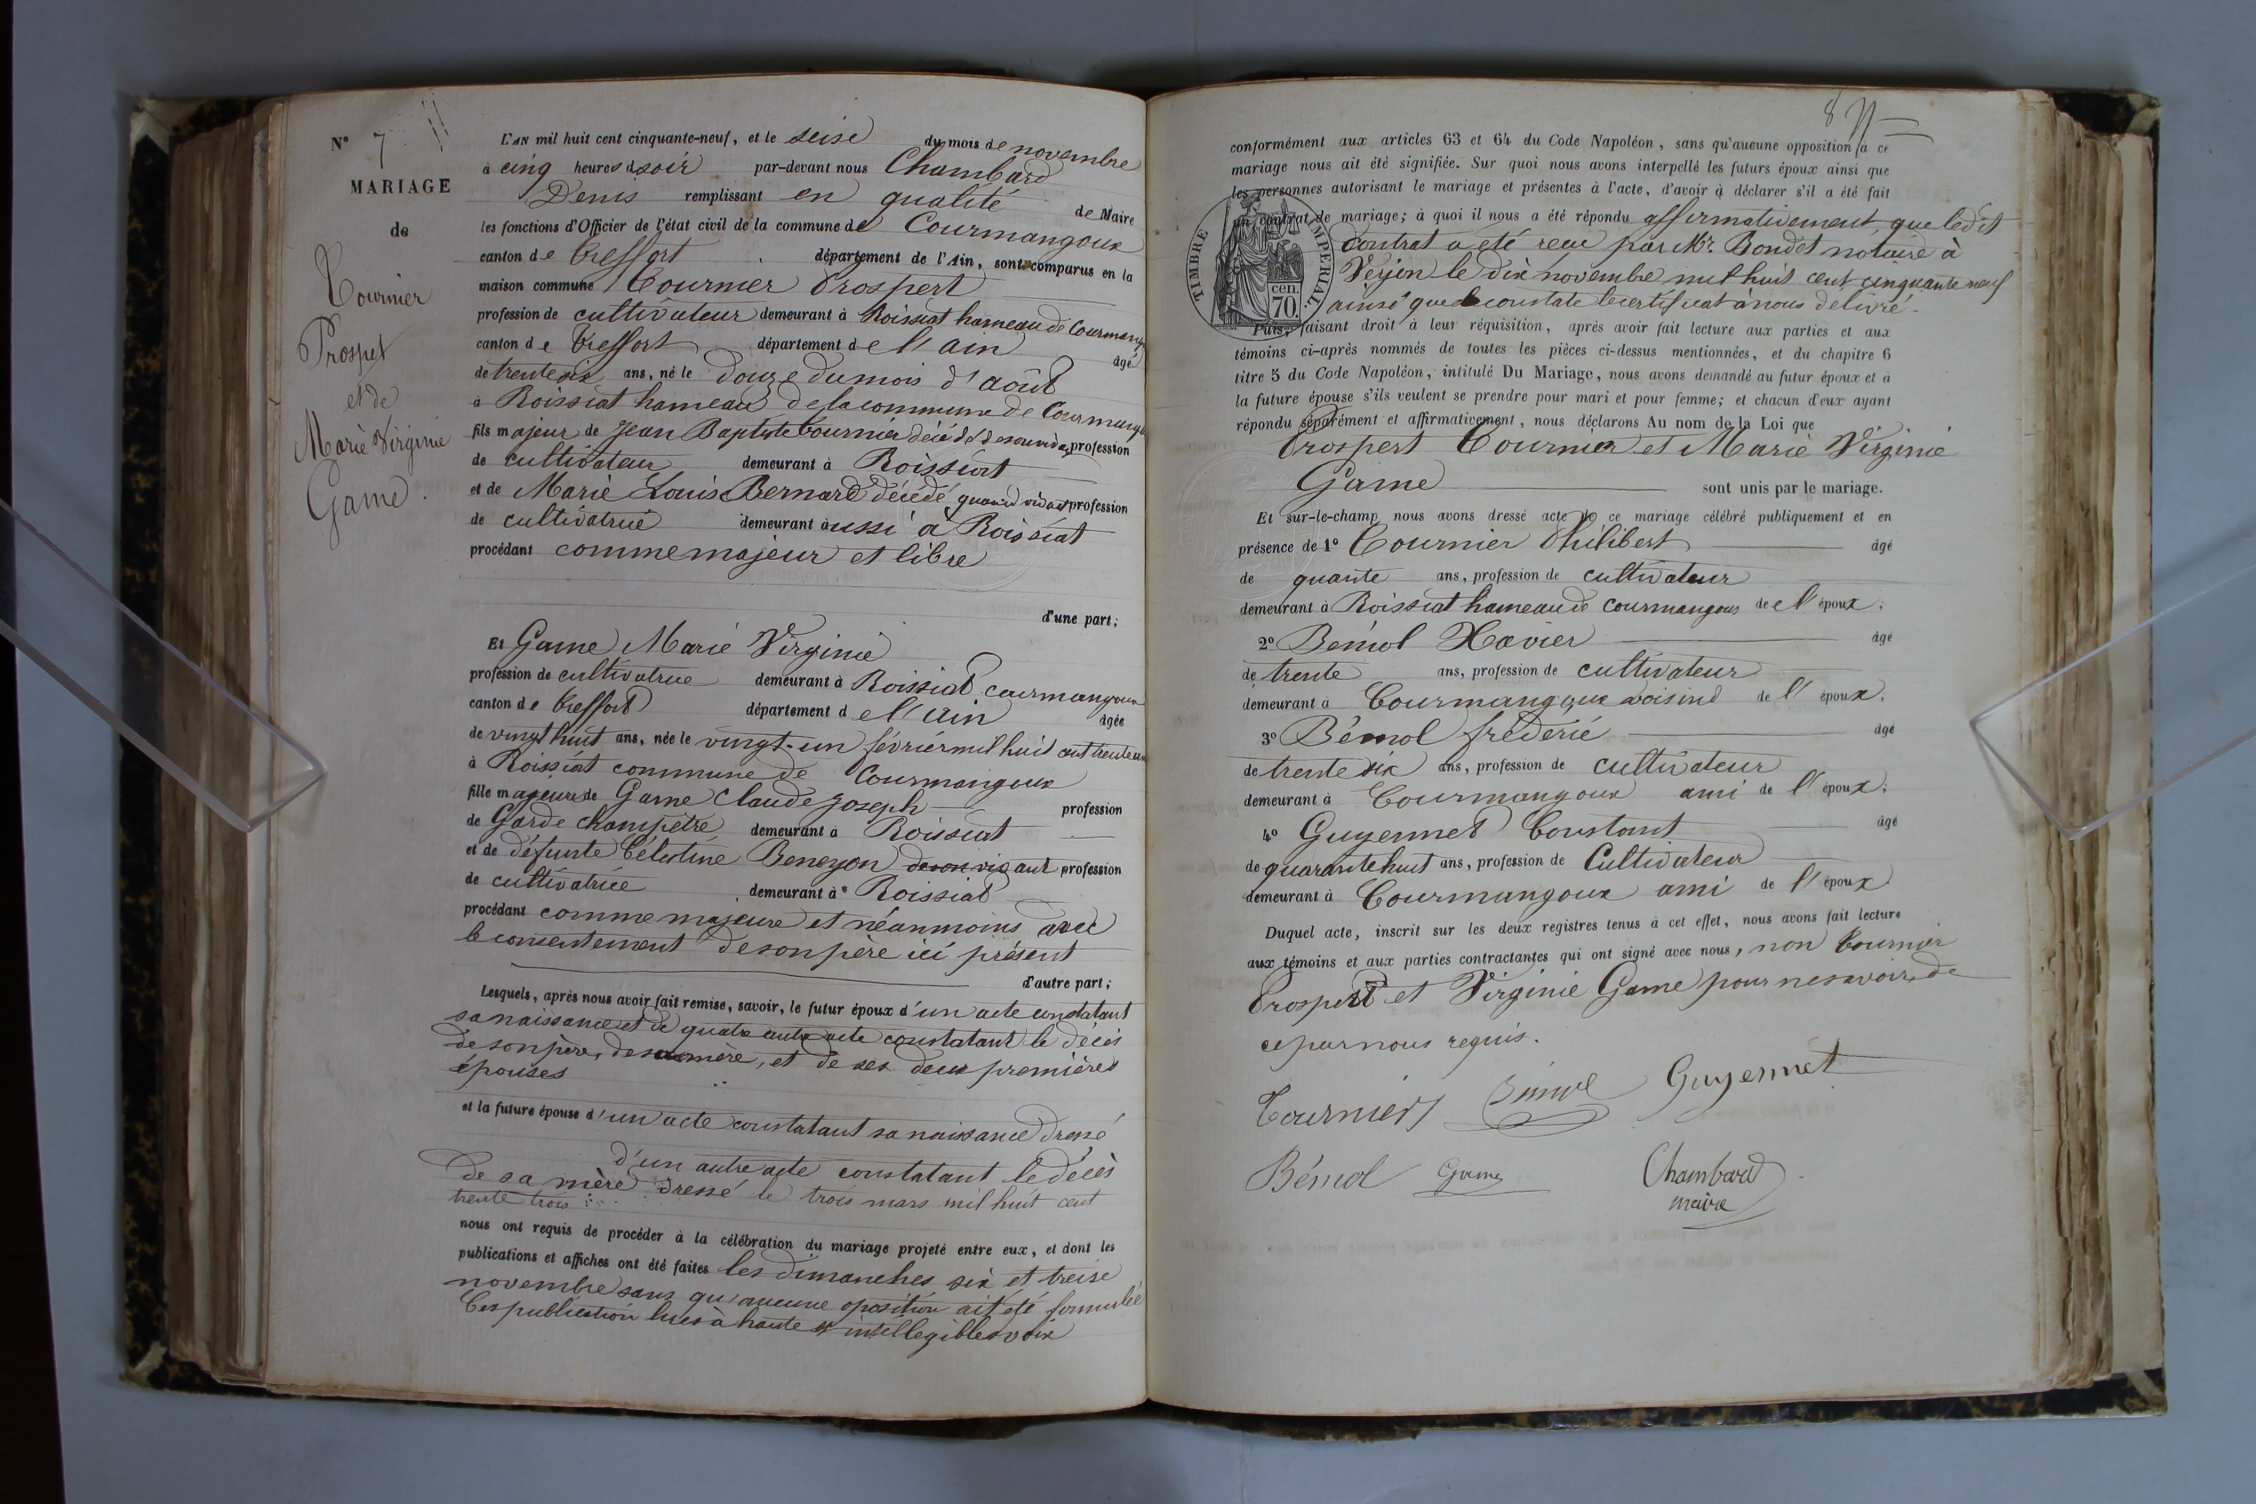 N° 7
MARIAGE
de
Tournier
Prospet
et de
Marie Virginie
Game.
L'AN mil huit cent cinquante-neuf, et le seise du mois de novembre
à cinq heures d soir par-devant nous Chambard
Denis remplissant en qualité de Maire
les fonctions d'Officier de l'état civil de la commune de Courmangoux
canton de treffort département de l'Ain, sont comparus en la
maison commune Tournier Prospert
profession de cultivateur demeurant à Roissiat hameau de Courmang
canton de treffort département de l'ain âgé
de trente six ans, né le douze du mois d'août
à Roissiat hameau de la commune de Courmangx
fils majeur de Jean Baptiste tournier décédé de son vivant profession
de cultivateur demeurant à Roissiat
et de Marie Louise Bernard décédé quand vivait profession
de cultivatrice demeurant aussi à Roissiat
procédant comme majeur et libre
d'une part;
Et Game Marie Virginie
profession de cultivatrice demeurant à Roissiat courmangoux
canton de treffort département de l'ain âgée
de vingt huit ans, née le vingt-un février mil huit cent trente un
à Roissiat commune de Courmangoux
fille majeure de Game Claude Joseph profession
de Garde champêtre demeurant à Roissiat
et de défunte Célestine Beneyon de son vivant profession
de cultivatrice demeurant à Roissiat
procédant comme majeure et néanmoins avec
le consentement de son père ici présent
d'autre part;
Lesquels, après nous avoir fait remise, savoir, le futur époux d'un acte constatant
sa naissance et de quatre autre acte constatant le décès
de son père, de sa mère, et de ses deux premières
épouses
et la future épouse d'un acte constatant sa naissance dressé
d'un autre acte constatant le décès
de sa mère dressé le trois mars mil huit cent
trente trois
nous ont requis de procéder à la célébration du mariage projeté entre eux, et dont les
publications et affiches ont été faites les dimanches six et treise
novembre sans qu'aucune oposition ait été formulée
Ces publication lues à haute et intellegible voix
8
conformément aux articles 63 et 64 du Code Napoléon, sans qu'aucune opposition à ce
mariage nous ait été signifiée. Sur quoi nous avons interpellé les futurs époux ainsi que
les personnes autorisant le mariage et présentes à l'acte, d'avoir à déclarer s'il a été fait
un contrat de mariage; à quoi il nous a été répondu affirmativement, que ledit
contrat a été reçu par Mr. Bondet notaire à
Verjon le dix novembre mil huit cent cinquante neuf
ainsi que le constate le certificat à nous delivré.
TIMBRE IMPERIAL.
70. cen.
Puis, faisant droit à leur réquisition, après avoir fait lecture aux parties et aux
témoins ci-après nommés de toutes les pièces ci-dessus mentionnées, et du chapitre 6
titre 5 du Code Napoléon, intitulé Du Mariage, nous avons demandé au futur époux et à
la future épouse s'ils veulent se prendre pour mari et pour femme; et chacun d'eux ayant
répondu séparément et affirmativement, nous déclarons Au nom de la Loi que
Prospert Tournier et Marie Virginie
Game sont unis par le mariage.
Et sur-le-champ nous avons dressé acte de ce mariage célébré publiquement et en
présence de 1° Tournier Philibert âgé
de quante ans, profession de cultivateur
demeurant à Roissiat hameau de courmangoux de l'époux;
2° Bémol Xavier âgé
de trente ans, profession de cultivateur
demeurant à Courmangoux voisind de l'époux;
3° Bémol fréderic âgé
de trente six ans, profession de cultivateur
demeurant à Courmangoux ami de l'époux;
4° Guyennet Constant âgé
de quarante huit ans, profession de Cultivateur
demeurant à Courmangoux ami de l'époux
Duquel acte, inscrit sur les deux registres tenus à cet effet, nous avons fait lecture
aux témoins et aux parties contractantes qui ont signé avec nous, non tournier
Prospert et Virginie Game pour ne savoir, de
ce par nous requis.
Tournier Bémol Guyennet
Bémol Game Chambard
maire